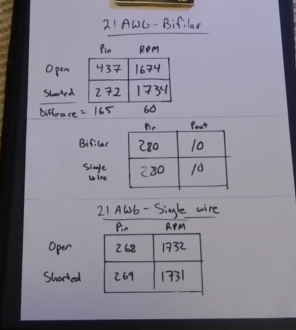 21 AWG - Bifilar
Pin RPM
Open 437 1674
Shorted 272 1734
Differance = 165 60
Pin Pout
Bifilar 280 10
Single wire 280 10
21 AWG - Single wire
Pin RPM
Open 268 1732
Shorted 269 1731